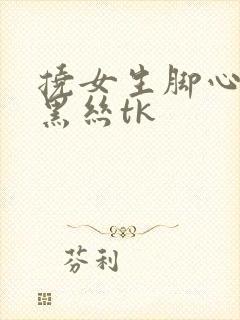 撓女生脚心
黑丝tk
芬利